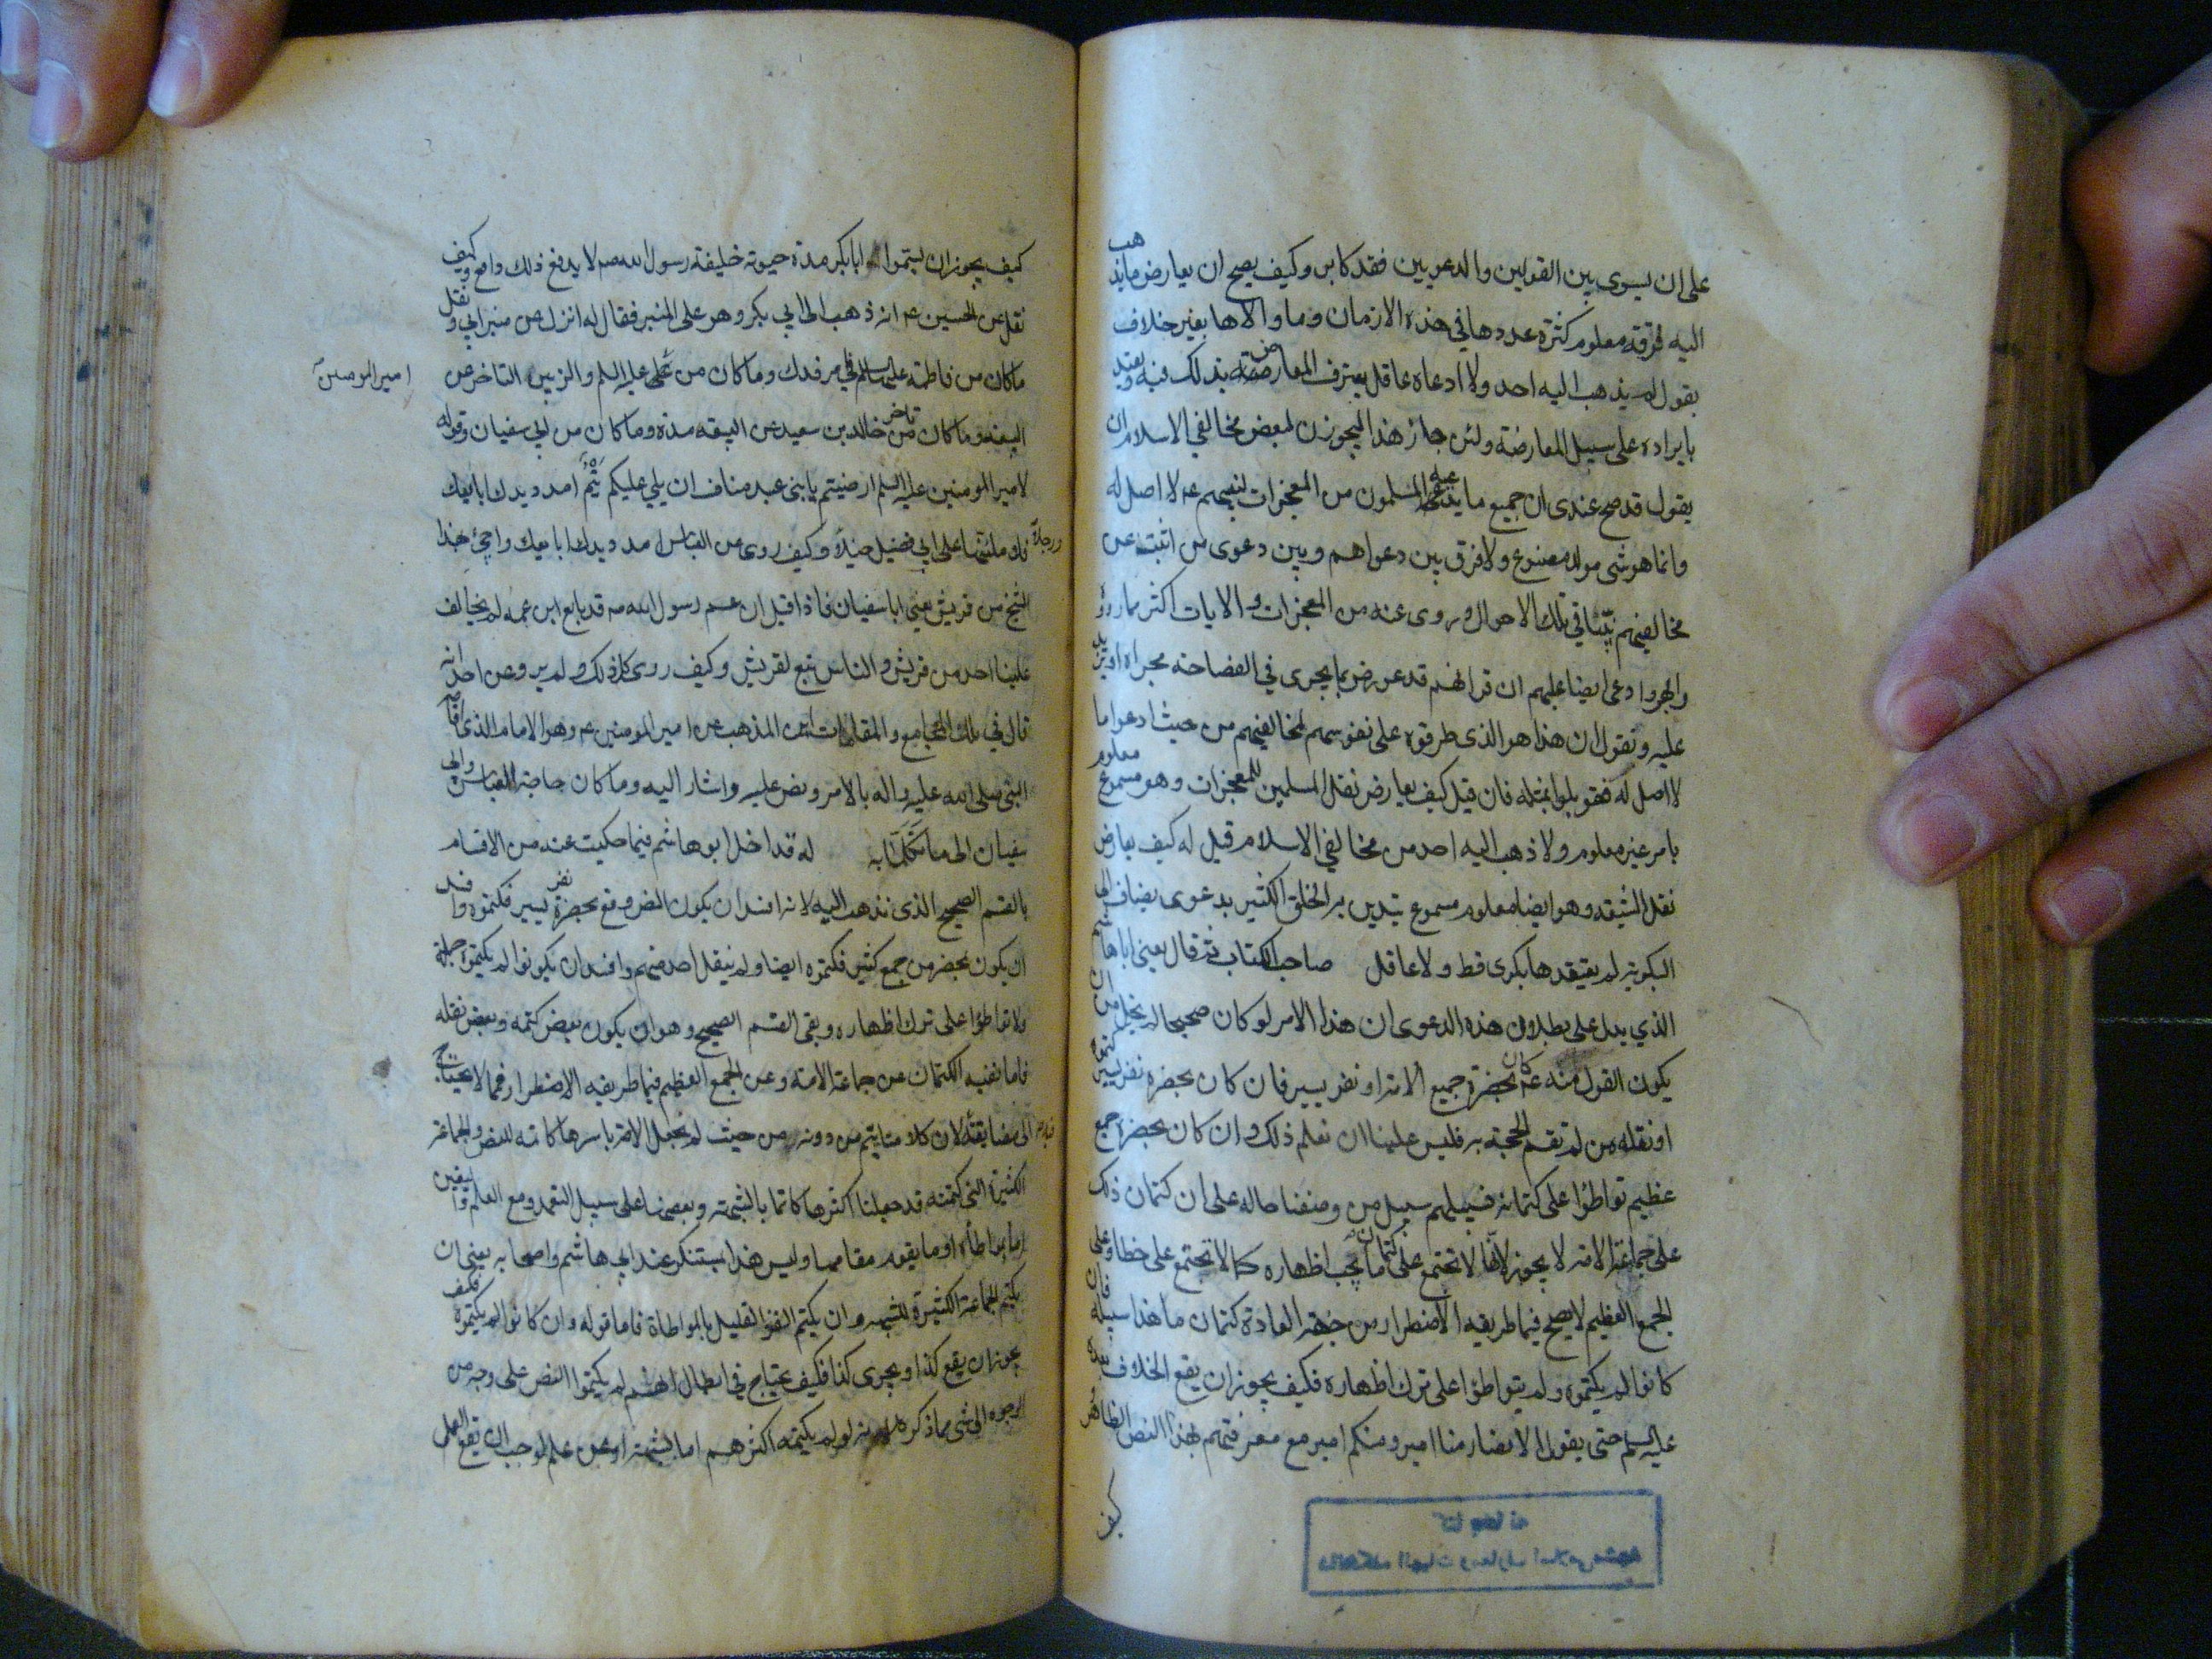 على ان يسوى بين القولين والدعويين فقد كابر وكيف يصح ان يعارض مايذهب
اليه فرقة معلوم كثرة عددها في هذه الازمان وما والاها بغير خلاف
بقول لم يذهب اليه احد ولا ادعاه عاقل يعترف المعارض بذلك فيه ويعتد
بايراده على سبيل المعارضة ولئن جاز هذا ليجوزن لبعض مخالفي الاسلام ان
يقول قد صح عندى ان جميع ما يدعيه المسلمون من المعجزات لنبيهم عم لا اصل له
وانما هو شى مولد مصنوع ولا فرق بين دعواهم وبين دعوى من اثبت عن
مخالفيهم في تلك الاحوال وروى عنه من المعجزات والايات اكثر مما رووا
وادعى ايضا عليهم ان قرانهم قد عورض بما يجرى في الفصاحة مجراه او يزيد
عليه ونقول ان هذا هو الذى طرقوه على نفوسهم لمخالفيهم من حيث ادعوا ما
لا اصل له فقوبلوا بمثله فان قيل كيف يعارض نقل المسلمين للمعجزات وهو مسموع معلوم
بامر غير معلوم ولا ذهب اليه احد من مخالفي الاسلام قيل له كيف يعارض
نقل الشيعة وهو ايضا معلوم مسموع يتدين به الخلق الكثير بدعوى يضاف الى
البكرية لم يعتقدها بكرى قط ولا عاقل صاحب الكتاب ثم قال يعنى ابا هاشم
الذي يدل على بطلان هذه الدعوى ان هذا الامر لو كان صحيحا لم يخل من ان
يكون القول منه عم كان بحضرة جميع الامة او نفر يسير فان كان بحضرة نفر يسير كتموا
او نقله من لم تقم الحجة به فليس علينا ان نعلم ذلك وان كان بحضرة جمع
عظيم تواطؤا على كتمانه فسبيلهم سبيل من وصفنا حاله على ان كتمان ذلك
على جماعة الامة لا يجوز لانها لا تجتمع على كتمان ما يجب اظهاره كما لا تجتمع على خطا وعلى
الجمع العظيم لا يصح فيما طريقه الاضطرار من جهة العادة كتمان ما هذا سبيله فان
كانوا لم يكتموه ولم يتواطؤا على ترك اظهاره فكيف يجوز ان يقع الخلاف بعده
عليه السلم حتى يقول الانصار منا امير ومنكم امير مع معرفتهم بهذا النص الظاهر
كيف
كيف يجوز ان يسموا ابا بكر مدة حيوته خليفة رسول الله صم لا يدفع ذلك دافع وكيف
نقل عن الحسين عم انه ذهب الى ابي بكر وهو على المنبر فقال له انزل عن منبر ابي ونقل
ما كان من فاطمة عليها السلم في امر فدك وما كان من على عليه السلم والزبير من التاخر عن
امير المومنين
البيعة وما كان من تاخر خالد بن سعيد عن البيعة مدة وما كان من ابي سفيان وقوله
لامير المومنين عليه السلم ارضيتم يا بنى عبد مناف ان يلي عليكم تيم امدد يدك ابايعك
فلاملئنها على ابي فصيل خيلا ورجلا وكيف روى عن العباس امدد يدك ابايعك واجئ بهذا
الشيخ من قريش يعني ابا سفيان فاذا قيل ان عم رسول الله صم قد بايع ابن عمه لم يخالف
علينا احد من قريش والناس تبع لقريش وكيف روى كل ذلك ولم يرو عن احد انه
قال في تلك المجامع والمقامات اين المذهب عن امير المومنين عم وهو الامام الذى اقامه
النبي صلى الله عليه واله بالامر ونص عليه واشار اليه وما كان حاجة العباس وابى
سفيان الى ما تكلما به له قد اخل ابو هاشم فيما حكيت عنه من الاقسام
بالقسم الصحيح الذى نذهب اليه لانه افسد ان يكون النص وقع بحضرة نفر يسير فكتموه وافسد
ان يكون بحضر من جمع كثير فكتموه ايضا ولم ينقل احد منهم وافسد ان يكونوا لم يكتموه جملة
ولا تواطؤا على ترك اظهاره وبقى القسم الصحيح وهو ان يكون بعض كتمه وبعض نقله
فاما نفيه الكتمان عن جماعة الامة وعن الجمع العظيم فيما طريقه الاضطرار فمما لا يحتاج
الى مضايقته لان كلامنا يتم من دونه من حيث لم نجعل الامة باسرها كاتمة للنص والجماعة
الكثيرة التى كتمته قد جعلنا اكثرها كاتما بالشبهة وبعضها على سبيل التعمد ومع العلم واليقين
اما بمواطاة او ما يقوم مقامها وليس هذا بمستنكر عند ابي هاشم واصحابه يعنى ان
يكتم الجماعة الكثيرة للشبهة وان يكتم النفر القليل بالمواطاة فاما قوله وان كانوا لم يكتموه فكيف
يجوز ان يقع كذا ويجرى كذا فكيف يحتاج في ابطال انهم لم يكتموا النص على وجه من
الوجوه الى شى مما ذكره لانه لو لم يكتمه اكثرهم اما بشبهة او عن علم لوجب ان يقع العلم